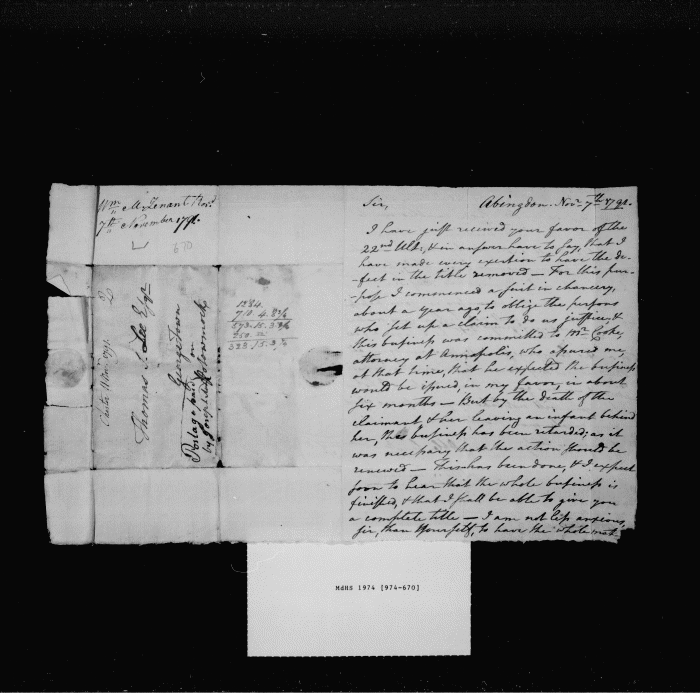 Wm McTenant
7th November 1791.
670
Thomas S. Lee Esqr
Georgetown
Postage paid
by Joseph
Sir, Abingdon. Novr. 7th 1791.
I have just recieved your favor of the
22nd Ult., & in answer have to say, that I
have made every exertion to have the de-
-fect in the title removed — For this pur-
-pose I commenced a suit in chancery,
about a year ago, to oblige the persons
who set up a claim to do us justice, &
this business was committed to Mr. Cooke,
attorney at Annapolis, who assured me,
at that time, that he expected the business
would be issued, in my favor, in about
six months — But by the death of the
claimant & her leaving an infant behind
her, this business has been retarded, as it
was necessary that the action should be
renewed — This has been done, & I expect
soon to hear that the whole business is
finished, & that I shall be able to give you
a complete title — I am not less anxious,
Sir, than yourself, to have the whole mat-
MdHS 1974 [974-670]